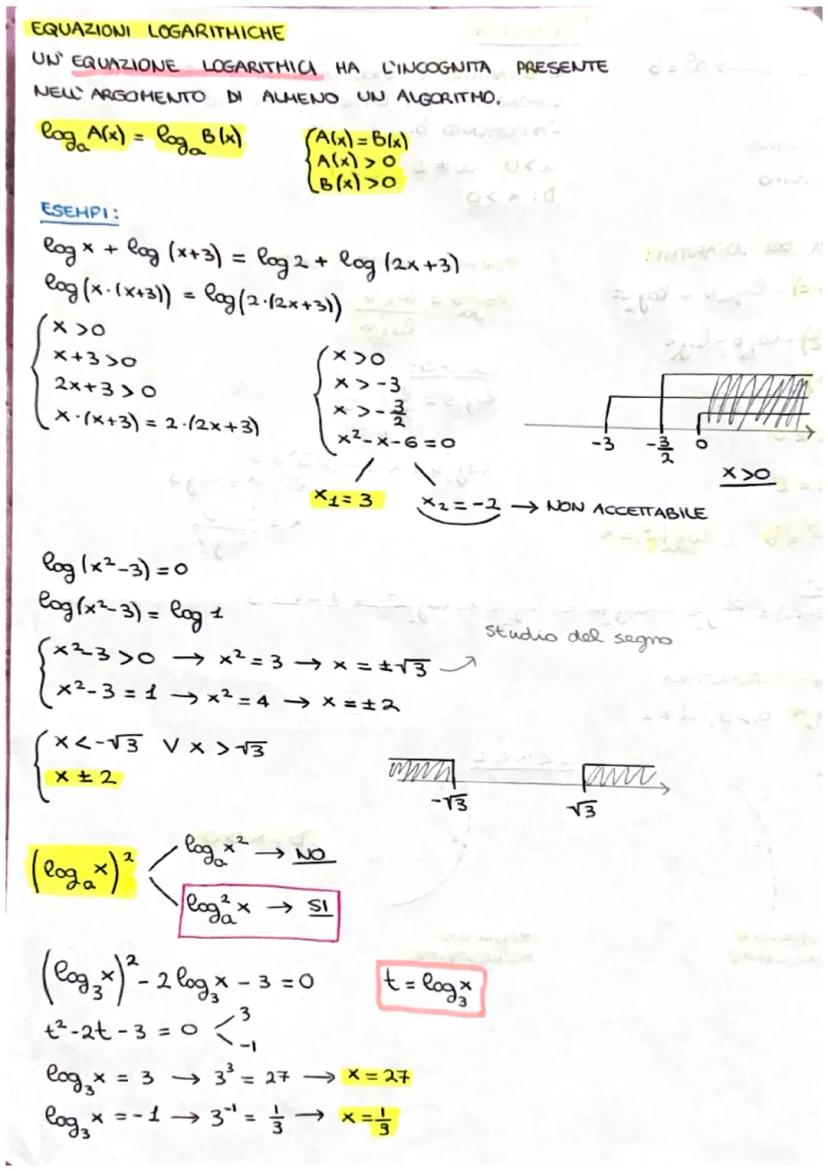 EQUAZIONI LOGARITMICHE
UN' EQUAZIONE LOGARITMICA HA L'INCOGNITA PRESENTE
NELL' ARGOMENTO DI ALMENO UN ALGORITMO.
log_a A(x) = log_a B(x)
{A(x) = B(x)
A(x) > 0
B(x) > 0
ESEMPI:
log x + log (x+3) = log 2 + log (2x+3)
log (x·(x+3)) = log (2·(2x+3))
{x > 0
x+3 > 0
2x+3 > 0
x·(x+3) = 2·(2x+3)
{x > 0
x > -3
x > -3/2
x² - x - 6 = 0
x₁ = 3
x₂ = -2 → NON ACCETTABILE
-3 -3/2 0
x > 0
log (x²-3) = 0
log (x²-3) = log 1
{x²-3 > 0 → x² = 3 → x = ±√3
studio del segno
x²-3 = 1 → x² = 4 → x = ±2
{x < -√3 ∨ x > √3
x ± 2
-√3 √3
(log_a x)²
log_a x² → NO
log²_a x → SI
(log₃ x)² - 2 log₃ x - 3 = 0
t = log₃ x
t² - 2t - 3 = 0
3
-1
log₃ x = 3 → 3³ = 27 → x = 27
log₃ x = -1 → 3⁻¹ = 1/3 → x = 1/3